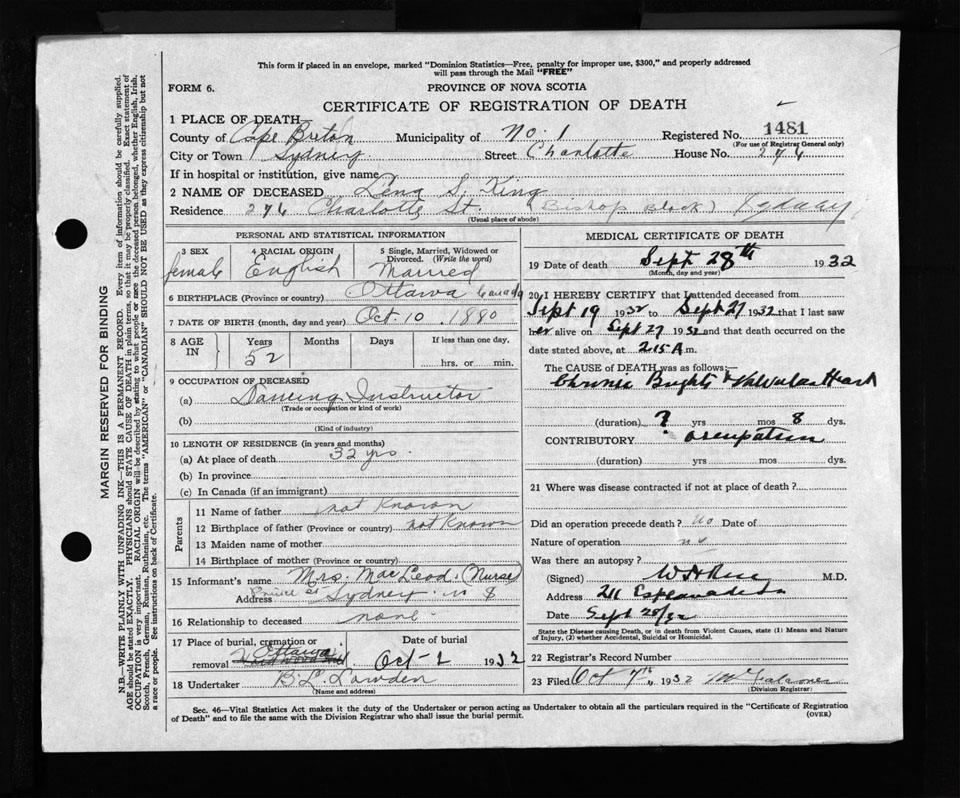 This form if placed in an envelope, marked "Dominion Statistics—Free, penalty for improper use, $300," and properly addressed
will pass through the Mail "FREE"
FORM 6.
PROVINCE OF NOVA SCOTIA
CERTIFICATE OF REGISTRATION OF DEATH
1 PLACE OF DEATH
County of Cape Breton Municipality of No. 1 Registered No. 1481
(For use of Registrar General only)
City or Town Sydney. Street Charlotte House No. 276
If in hospital or institution, give name
2 NAME OF DECEASED Lena S. King
Residence 276 Charlotte St. (Bishop Block) Sydney
(Usual place of abode)
PERSONAL AND STATISTICAL INFORMATION
3 SEX 4 RACIAL ORIGIN 5 Single, Married, Widowed or Divorced. (Write the word)
female English Married
6 BIRTHPLACE (Province or country) Ottawa Canada
7 DATE OF BIRTH (month, day and year) Oct. 10. 1880
8 AGE IN Years Months Days If less than one day,
52 hrs. or min.
9 OCCUPATION OF DECEASED
(a) Dancing Instructor
(Trade or occupation or kind of work)
(b)
(Kind of industry)
10 LENGTH OF RESIDENCE (in years and months)
(a) At place of death 32 yrs.
(b) In province
(c) In Canada (if an immigrant)
Parents
11 Name of father not Known
12 Birthplace of father (Province or country) not Known
13 Maiden name of mother
14 Birthplace of mother (Province or country)
15 Informant's name Mrs. MacLeod. (Nurse)
Address Sydney
16 Relationship to deceased none
17 Place of burial, cremation or removal Ottawa Date of burial Oct-2 1932
18 Undertaker B. L. Lowden
(Name and address)
MEDICAL CERTIFICATE OF DEATH
19 Date of death Sept 28th 1932
(Month, day and year)
20 I HEREBY CERTIFY that I attended deceased from
Sept 19 1932 to Sept 27 1932 that I last saw
her alive on Sept 27 1932 and that death occurred on the
date stated above, at 2 15 A.m.
The CAUSE of DEATH was as follows:—
Chronic Brights & Valvular Heart
(duration) ? yrs mos 8 dys.
CONTRIBUTORY occupation
(duration) yrs mos dys.
21 Where was disease contracted if not at place of death?
Did an operation precede death? No Date of
Nature of operation no
Was there an autopsy?
(Signed) M.D.
Address 211 Esplanade
Date Sept 28/32
State the Disease causing Death, or in death from Violent Causes, state (1) Means and Nature
of Injury, (2) whether Accidental, Suicidal or Homicidal.
22 Registrar's Record Number
23 Filed Oct 7th, 1932
(Division Registrar)
Sec. 46—Vital Statistics Act makes it the duty of the Undertaker or person acting as Undertaker to obtain all the particulars required in the "Certificate of Registration
of Death" and to file the same with the Division Registrar who shall issue the burial permit.
(OVER)
MARGIN RESERVED FOR BINDING
N.B.—WRITE PLAINLY WITH UNFADING INK—THIS IS A PERMANENT RECORD. Every item of information should be carefully supplied.
AGE should be stated EXACTLY. PHYSICIANS should STATE CAUSE OF DEATH in plain terms, so that it may be properly classified. Exact statement of
OCCUPATION is very important. RACIAL ORIGIN will be described by stating to what people or race the deceased person belonged, whether English, Irish,
Scotch, French, German, Russian, Ruthenian, etc. The terms "AMERICAN" or "CANADIAN" SHOULD NOT BE USED as they express citizenship but not
a race or people. See instructions on back of Certificate.